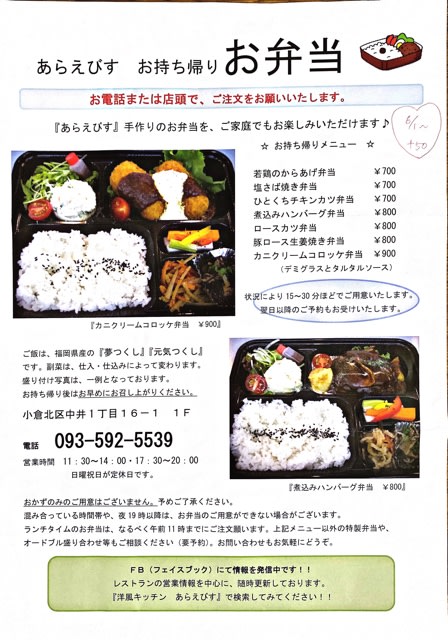 あらえびす お持ち帰り お弁当
お電話または店頭で、ご注文をお願いいたします。
『あらえびす』手作りのお弁当を、ご家庭でもお楽しみいただけます♪
6/1〜
+50
☆ お持ち帰りメニュー ☆
若鶏のからあげ弁当 ￥700
塩さば焼き弁当 ￥700
ひとくちチキンカツ弁当 ￥700
煮込みハンバーグ弁当 ￥800
ロースカツ弁当 ￥800
豚ロース生姜焼き弁当 ￥800
カニクリームコロッケ弁当 ￥900
（デミグラスとタルタルソース）
状況により15～30分ほどでご用意いたします。
翌日以降のご予約もお受けいたします。
『カニクリームコロッケ弁当 ￥900』
ご飯は、福岡県産の『夢つくし』『元気つくし』
です。副菜は、仕入・仕込みによって変わります。
盛り付け写真は、一例となっております。
お持ち帰り後はお早めにお召し上がりください。
小倉北区中井１丁目１６－１ １Ｆ
電話 093-592-5539
営業時間 11：30～14：00・17：30～20：00
日曜祝日が定休日です。
『煮込みハンバーグ弁当 ￥800』
おかずのみのご用意はございません。予めご了承ください。
混み合っている時間帯や、夜19時以降は、お弁当のご用意ができない場合がございます。
ランチタイムのお弁当は、なるべく午前11時までにご注文願います。上記メニュー以外の特製弁当や、
オードブル盛り合わせ等もご相談ください（要予約）。お問い合わせもお気軽にどうぞ。
ＦＢ（フェイスブック）にて情報を発信中です！！
レストランの営業情報を中心に、随時更新しております。
『洋風キッチン あらえびす』で検索してみてください！！